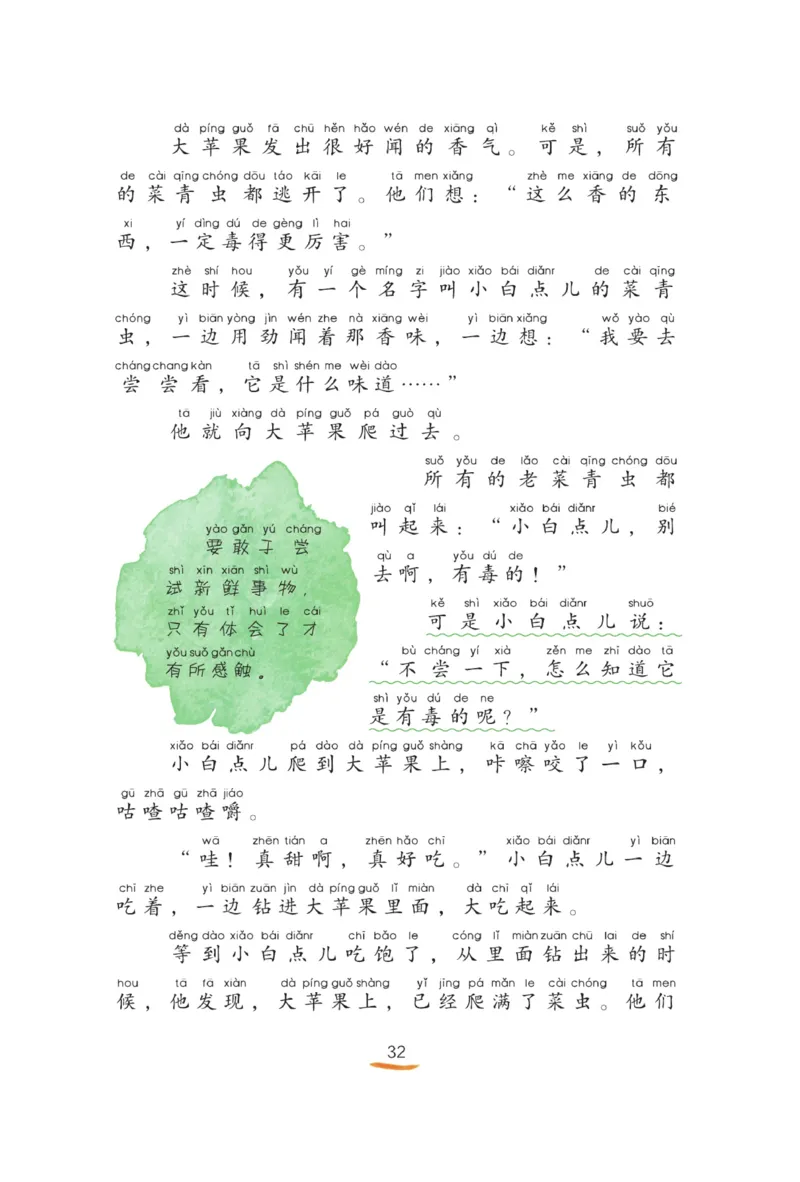 dà píng guǒ fā chū hěn hǎo wén de xiāng qì kě shì suǒ yǒu
大苹果发出很好闻的香气。可是，所有
de cài qīng chóng dōu táo kāi le tā men xiǎng zhè me xiāng de dōng
的菜青虫都逃开了。他们想：“这么香的东
xi yí dìng dú de gèng lì hai
西，一定毒得更厉害。”
zhè shí hou yǒu yí gè míng zi jiào xiǎo bái diǎnr de cài qīng
这时候，有一个名字叫小白点儿的菜青
chóng yì biān yòng jìn wén zhe nà xiāng wèi yì biān xiǎng wǒ yào qù
虫，一边用劲闻着那香味，一边想：“我要去
cháng chang kàn tā shì shén me wèi dào
尝尝看，它是什么味道……”
tā jiù xiàng dà píng guǒ pá guò qù
他就向大苹果爬过去。
suǒ yǒu de lǎo cài qīng chóng dōu
所有的老菜青虫都
jiào qǐ lái xiǎo bái diǎnr bié
叫起来：“小白点儿，别
qù a yǒu dú de
去啊，有毒的！”
kě shì xiǎo bái diǎnr shuō
可是小白点儿说：
bù cháng yí xià zěn me zhī dào tā
“不尝一下，怎么知道它
shì yǒu dú de ne
是有毒的呢？”
yào gǎn yú cháng
要敢于尝
shì xīn xiān shì wù
试新鲜事物，
zhǐ yǒu tǐ huì le cái
只有体会了才
yǒu suǒ gǎn chù
有所感触。
xiǎo bái diǎnr pá dào dà píng guǒ shàng kā chā yǎo le yì kǒu
小白点儿爬到大苹果上，咔嚓咬了一口，
gū zhā gū zhā jiáo
咕喳咕喳嚼。
wā zhēn tián a zhēn hǎo chī xiǎo bái diǎnr yì biān
“哇！真甜啊，真好吃。”小白点儿一边
chī zhe yì biān zuān jìn dà píng guǒ lǐ miàn dà chī qǐ lái
吃着，一边钻进大苹果里面，大吃起来。
děng dào xiǎo bái diǎnr chī bǎo le cóng lǐ miàn zuān chū lai de shí
等到小白点儿吃饱了，从里面钻出来的时
hou tā fā xiàn dà píng guǒ shàng yǐ jīng pá mǎn le cài chóng tā men
候，他发现，大苹果上，已经爬满了菜虫。他们
32